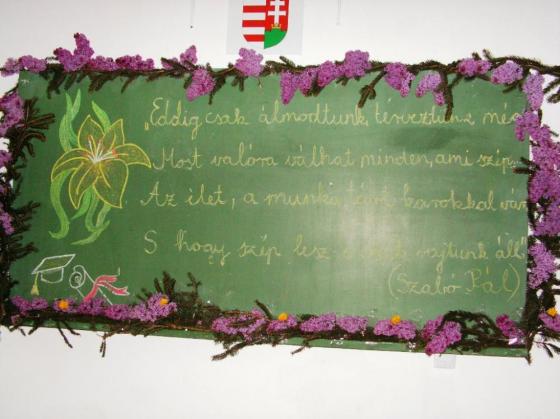 „Eddig csak álmodtunk, terveztünk, még
Most valóra válhat minden, ami szép,
Az élet, a munka tárt karokkal vár
S hogy szép lesz-e rajtunk áll
(Szabó Pál)